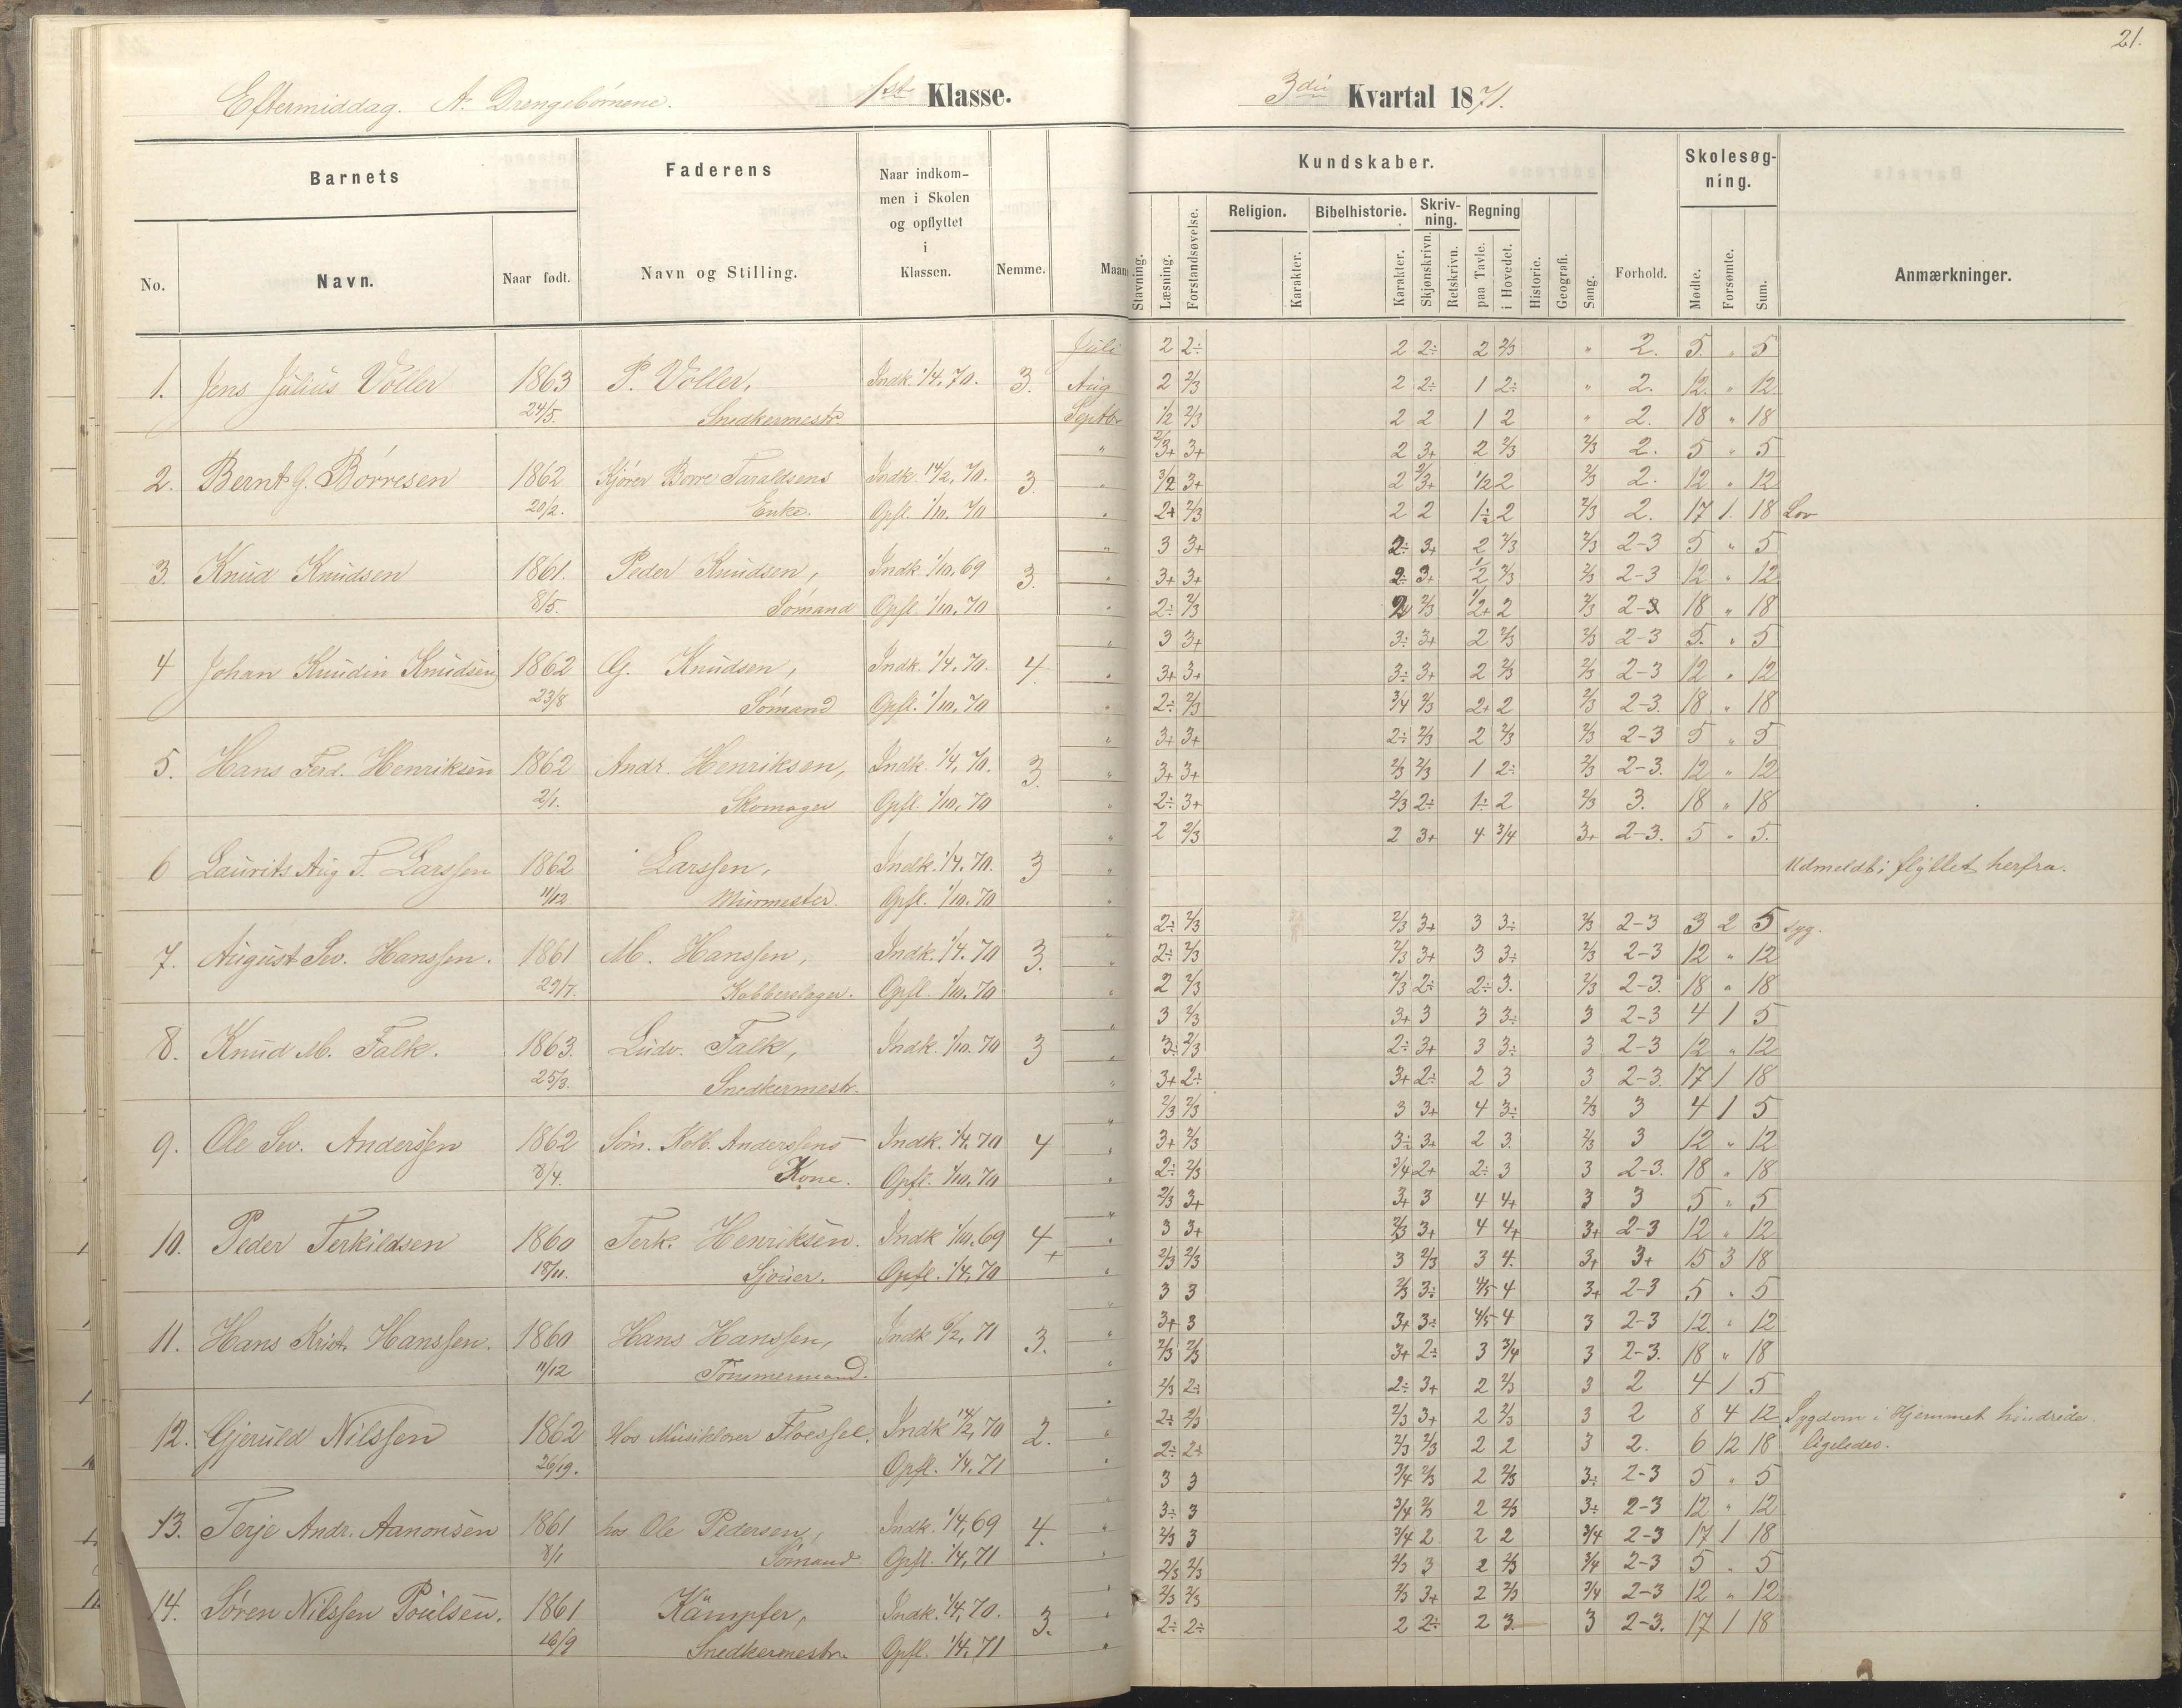 21.
Eftermiddag. A. Drengebörnene. 1ste Klasse. 3die Kvartal 1871.
Barnets Faderens Naar indkom- men i Skolen og opflyttet i Klassen. Nemme. Maan Kundskaber. Skolesøg- ning. Anmærkninger.
No. Navn. Naar født. Navn og Stilling.
Stavning. Læsning. Forstandsøvelse. Religion. Karakter. Bibelhistorie. Karakter. Skriv- ning. Skjønskrivn. Retskrivn. Regning paa Tavle. i Hovedet. Historie. Geografi. Sang. Forhold. Mødte. Forsømte. Sum.
Juli 2 2÷ 2 2÷ 2 2/3 " 2. 5. " 5
1. Jens Julius Voller 1863 P. Voller, Indk. 1/4.70. 3. Aug 2 2/3 2 2÷ 1 2÷ " 2. 12. " 12.
24/5. Snedkermestr. Septbr 1/2 2/3 2 2 1 2 " 2. 18 " 18
" 2/3+ 3+ 2 3+ 2 2/3 2/3 2. 5 " 5
2. Bernt G. Börresen 1862 Kjörer Borre Taraldsens Indk. 14/2, 70. 3. " 3/2 3+ 2 2/3+ 1/2 2 2/3 2. 12 " 12
20/2. Enke. Opfl. 1/10. 70 " 2+ 2/3 2 2 1÷ 2 2/3 2. 17 1. 18 Lov
" 3 3+ 2÷ 3+ 2 2/3 2/3 2-3 5 " 5
3. Knud Knudsen 1861. Peder Knudsen, Indk. 1/10,69 3. " 3+ 3+ 2÷ 3+ 1/2 2/3 2/3 2-3 12 " 12
8/5. Sömand Opfl. 1/10,70 " 2÷ 2/3 2/3 1/2+ 2 2/3 2-3 18 " 18
" 3 3+ 3÷ 3+ 2 2/3 2/3 2-3 5. " 5
4 Johan Knudin Knudsen 1862 G. Knudsen, Indk. 1/4.70. 4. " 3+ 3+ 3÷ 3+ 2 2/3 2/3 2-3 12 " 12
23/8 Sömand Opfl. 1/10,70 " 2÷ 2/3 3/4 2/3 2+ 2 2/3 2-3. 18 " 18
" 3+ 3+ 2÷ 2/3 2 2/3 2/3 2-3 5 " 5
5. Hans Ferd. Henriksen 1862 Andr. Henriksen, Indk. 1/4,70. 3. " 3+ 3+ 2/3 2/3 1 2÷ 2/3 2-3. 12 " 12
2/1. Skomager Opfl. 1/10,70 " 2÷ 3+ 2/3 2÷ 1÷ 2 2/3 3. 18 " 18
" 2 2/3 2 3+ 4 3/4 3+ 2-3. 5 " 5.
6 Laurits Aug F. Larssen 1862 Larssen, Indk. 1/4.70. 3 " Udmeldt; flyttet herfra.
11/12 Murmester. Opfl. 1/10.70 "
" 2÷ 2/3 2/3 3+ 3 3÷ 2/3 2-3 3 2 5 syg.
7. August Sev. Hanssen. 1861 M. Hanssen, Indk. 1/4.70 3. " 2÷ 2/3 2/3 3+ 3 3÷ 2/3 2-3 12 " 12
29/7. Kobberslager. Opfl. 1/10.70 " 2 2/3 2/3 2÷ 2÷ 3. 2/3 2-3. 18 " 18
" 3 2/3 3+ 3 3 3÷ 3 2-3 4 1 5
8. Knud M. Falk. 1863. Ludv. Falk, Indk. 1/10.70 3 " 3÷ 2/3 2÷ 3+ 3 3÷ 3 2-3 12 " 12
25/3. Snedkermestr. " 3+ 2÷ 3+ 2÷ 2 3 3 2-3. 17 1 18
" 2/3 2/3 3 3+ 4 3÷ 2/3 3 4 1 5
9. Ole Sev. Anderssen 1862 Söm. Kolb. Anderssens Indk. 1/4.70 4 " 3+ 2/3 3÷ 3+ 2 3. 2/3 3 12 " 12
8/4. Kone. Opfl. 1/10.70 " 2÷ 2/3 3/4 2+ 2÷ 3 3 2-3. 18 " 18
" 2/3 3+ 3+ 3 4 4+ 3 3 5 " 5
10. Peder Terkildsen 1860 Terk. Henriksen. Indk 1/10.69 4+ " 3 3+ 2/3 3+ 4 4+ 3+ 2-3 12 " 12
18/11. Sjouer. Opfl. 1/4.70 " 2/3 2/3 3 2/3 3 4. 3+ 3+ 15 3 18
" 3 3 2/3 3÷ 4/5 4 3+ 2-3 5 " 5
11. Hans Krist. Hanssen. 1860 Hans Hanssen, Indk 6/2, 71 3. " 3+ 3 3+ 3÷ 4/5 4 3 2-3 12. " 12
11/12 Tömmermand. " 2/3 2/3 3+ 2÷ 3 3/4 3 2-3. 18 " 18
" 2/3 2÷ 2÷ 3+ 2 2/3 3 2 4 1 5
12. Gjeruld Nilssen 1862 Hos Musiklærer Indk 14/2,70 2. " 2÷ 2/3 2/3 3+ 2 2/3 3 2 8 4 12 Sygdom i Hjemmet hindrede.
26/19. Opfl. 1/4.71 " 2÷ 2÷ 2/3 2/3 2 2 3 2. 6 12 18 ligeledes.
" 3 3 3/4 2/3 2 2/3 3÷ 2-3 5 " 5
13. Terje Andr. Aanonsen 1861 hos Ole Pedersen, Indk. 1/4,69 4. " 3÷ 3 3/4 2/3 2 2/3 3÷ 2-3 12 " 12
8/1 Sömand Opfl. 1/4,71 " 2/3 3 3/4 2 2 2 3/4 2-3 17 1 18
" 2/3 2/3 2/3 3 2 2/3 3/4 2-3 5 " 5
14. Sören Nilssen Poulsen. 1861 Kämpfer, Indk. 1/4,70. 3. " 2/3 2/3 2/3 3+ 2 2/3 3/4 2-3 12 " 12
26/9 Snedkermestr. Opfl. 1/4,71 " 2÷ 2÷ 2 2÷ 2 3. 3 2-3. 17 1 18